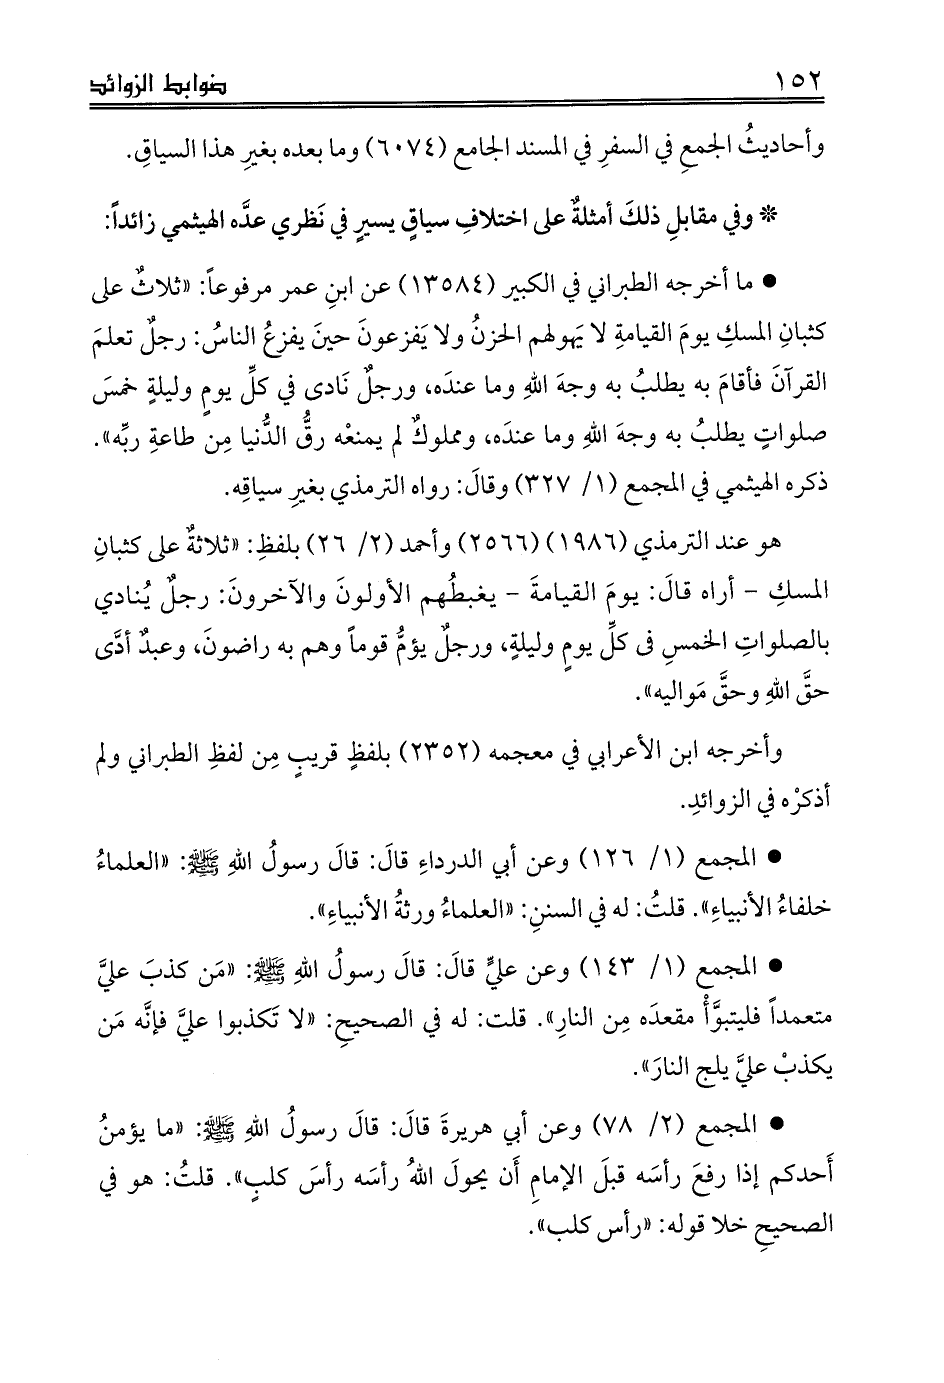 ١٥٢ ضوابط الزوائد
وأحاديثُ الجمعِ في السفرِ في المسند الجامع (٦٠٧٤) وما بعده بغيرِ هذا السياقِ.
* وفي مقابلِ ذلكَ أمثلةٌ على اختلافِ سياقٍ يسيرٍ في نَظري عدَّه الهيثمي زائداً:
● ما أخرجه الطبراني في الكبير (١٣٥٨٤) عن ابنِ عمر مرفوعاً: «ثلاثٌ على
كثبانِ المسكِ يومَ القيامةِ لا يَهولهم الحزنُ ولا يَفزعونَ حينَ يفزعُ الناسُ: رجلٌ تعلمَ
القرآنَ فأقامَ به يطلبُ به وجهَ اللهِ وما عندَه، ورجلٌ نَادى في كلِّ يومٍ وليلةٍ خمسَ
صلواتٍ يطلبُ به وجهَ اللهِ وما عندَه، ومملوكٌ لم يمنعْه رقُّ الدُّنيا مِن طاعةِ ربِّه».
ذكره الهيثمي في المجمع (١/ ٣٢٧) وقالَ: رواه الترمذي بغيرِ سياقِه.
هو عند الترمذي (١٩٨٦) (٢٥٦٦) وأحمد (٢/ ٢٦) بلفظِ: «ثلاثةٌ على كثبانِ
المسكِ - أراه قالَ: يومَ القيامةَ - يغبطُهم الأولونَ والآخرونَ: رجلٌ يُنادي
بالصلواتِ الخمسِ فى كلِّ يومٍ وليلةٍ، ورجلٌ يؤمُّ قوماً وهم به راضونَ، وعبدٌ أدَّى
حقَّ اللهِ وحقَّ مَواليه».
وأخرجه ابن الأعرابي في معجمه (٢٣٥٢) بلفظٍ قريبٍ مِن لفظِ الطبراني ولم
أذكرْه في الزوائدِ.
● المجمع (١/ ١٢٦) وعن أبي الدرداءِ قالَ: قالَ رسولُ اللهِ ﷺ: «العلماءُ
خلفاءُ الأنبياءِ». قلتُ: له في السننِ: «العلماءُ ورثةُ الأنبياءِ».
● المجمع (١/ ١٤٣) وعن عليٍّ قالَ: قالَ رسولُ اللهِ ﷺ: «مَن كذبَ عليَّ
متعمداً فليتبوَّأْ مقعدَه مِن النارِ». قلت: له في الصحيحِ: «لا تَكذبوا عليَّ فإنَّه مَن
يكذبْ عليَّ يلج النارَ».
● المجمع (٢/ ٧٨) وعن أبي هريرةَ قالَ: قالَ رسولُ اللهِ ﷺ: «ما يؤمنُ
أَحدكم إذا رفعَ رأسَه قبلَ الإمامِ أَن يحولَ اللهُ رأسَه رأسَ كلبٍ». قلتُ: هو في
الصحيحِ خلا قوله: «رأس كلب».